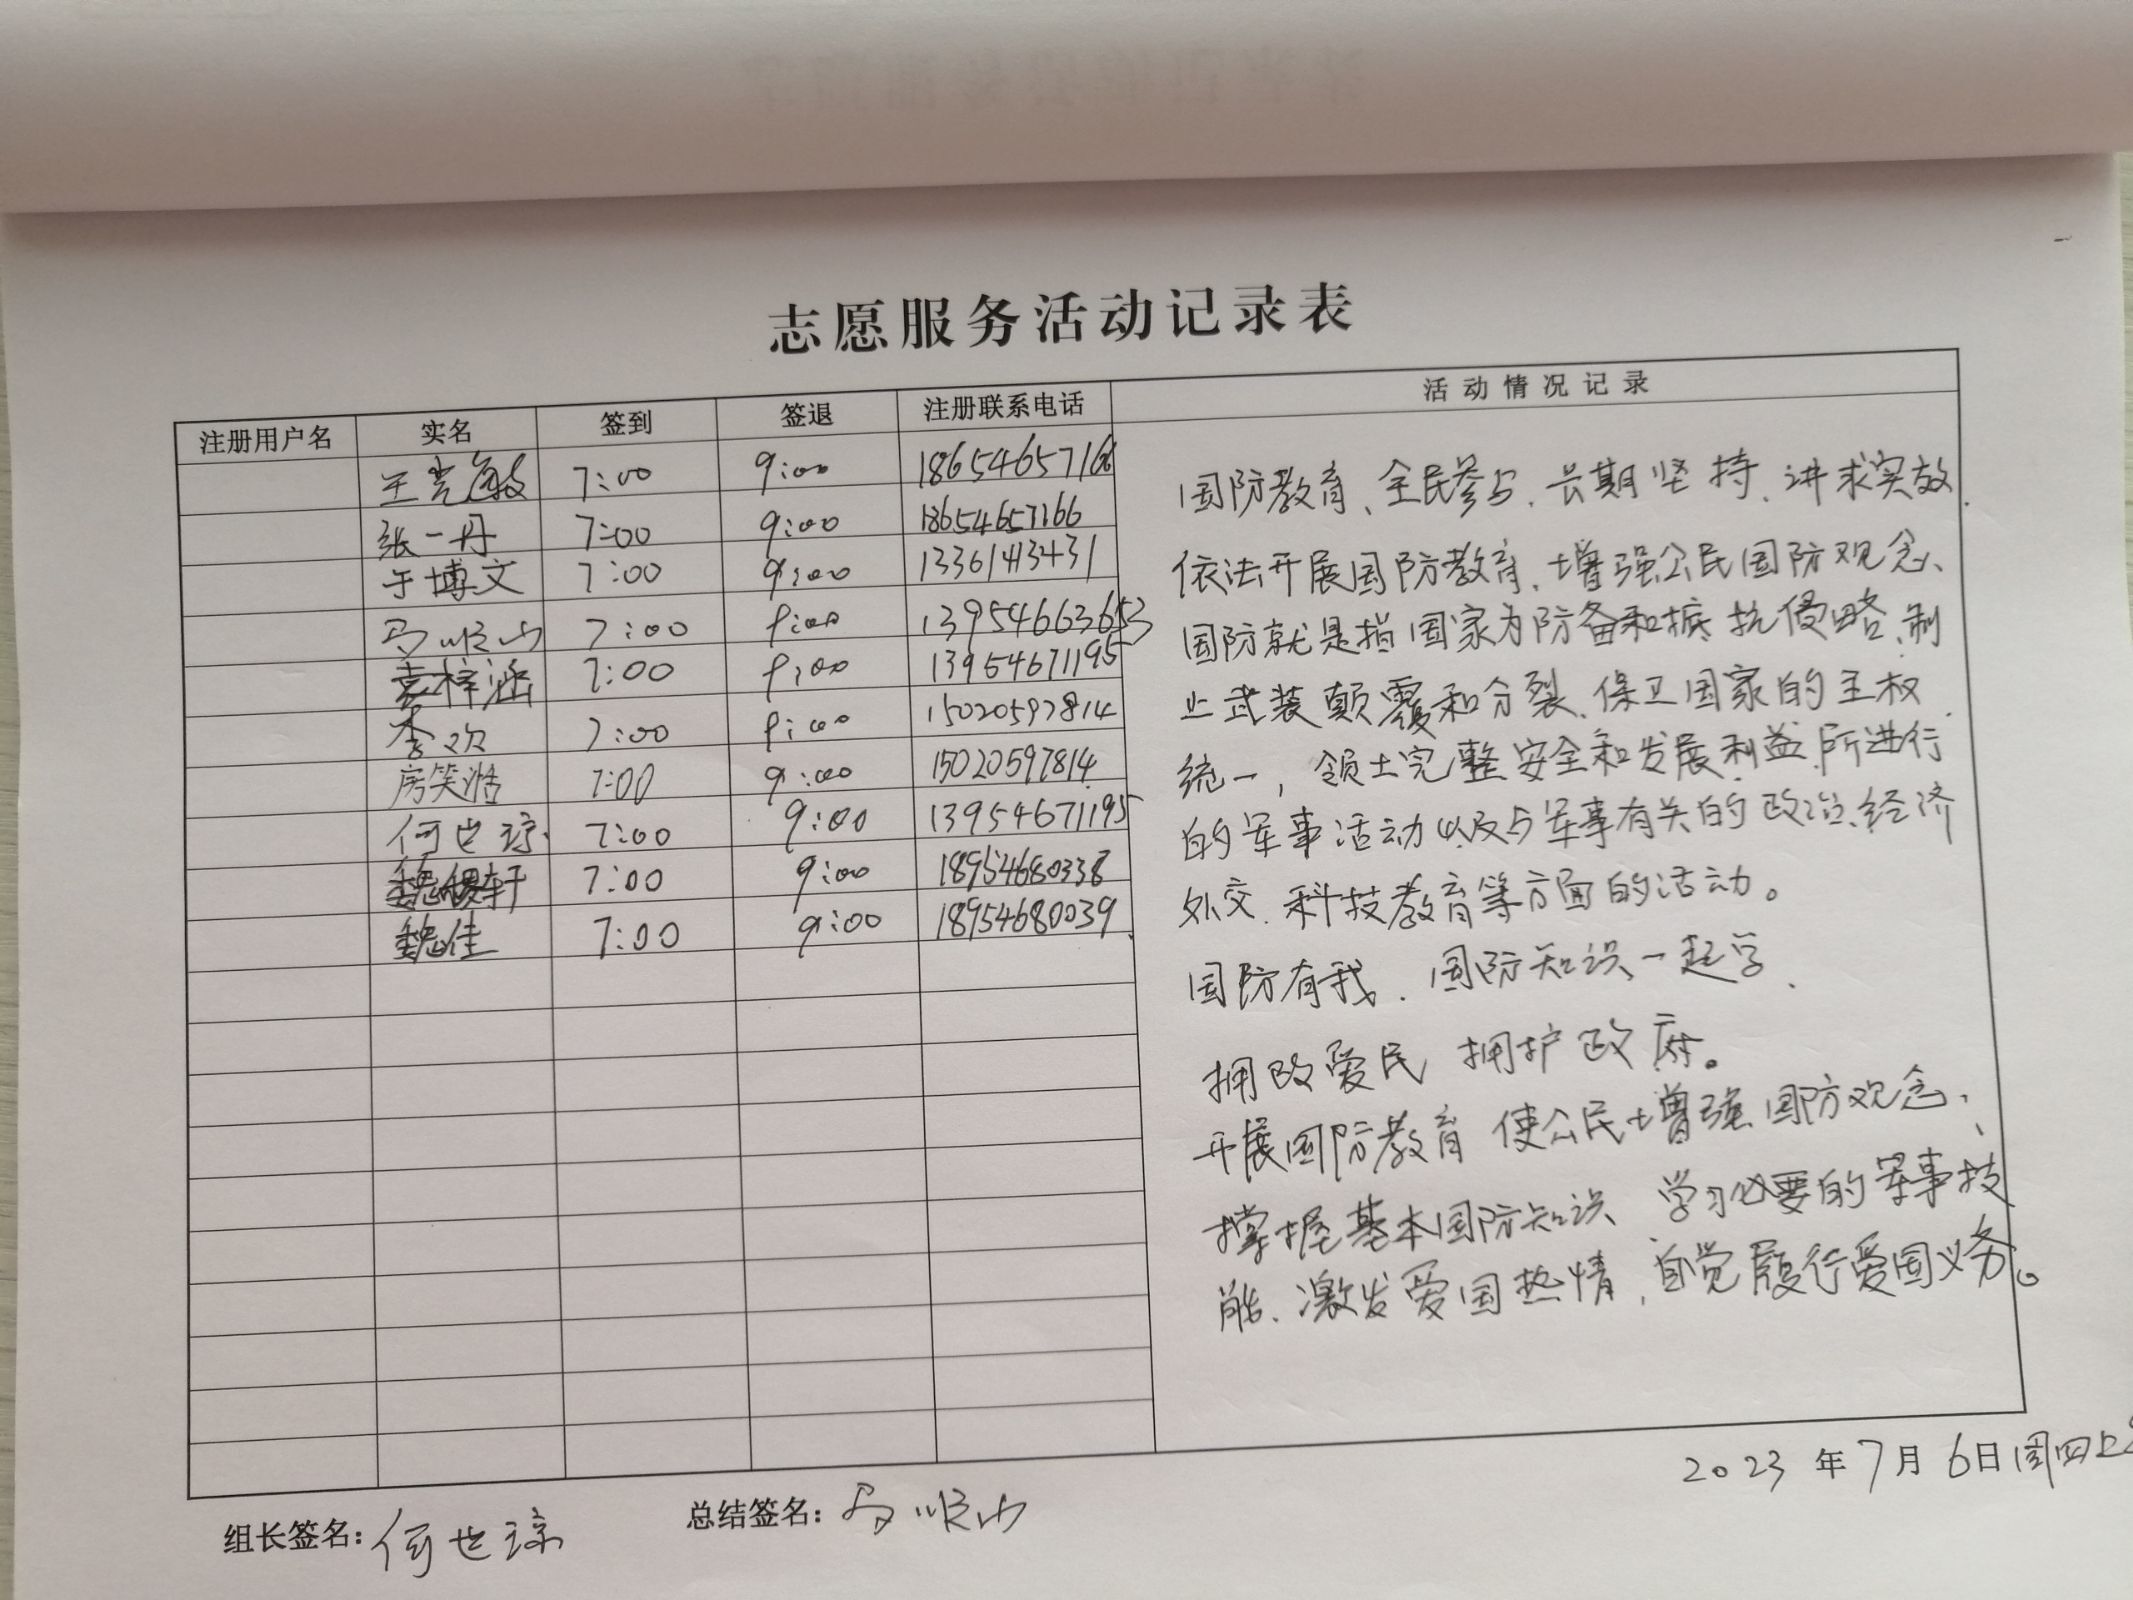 志愿服务活动记录表
注册用户名 实名 签到 签退 注册联系电话 活动情况记录
王光敏 7:00 9:00
张一丹 7:00 9:00 18654657166
于博文 7:00 9:00 13361413431
马顺山 7:00 9:00 13954663653
袁梓涵 7:00 9:00 13954671195
李欢 7:00 9:00 15020597814
房笑浩 7:00 9:00 15020597814
何世琼 7:00 9:00 13954671195
7:00 9:00 18954680338
魏佳 7:00 9:00 18954680039
国防教育、全民参与、长期坚持、讲求实效、
依法开展国防教育、增强公民国防观念、
国防就是指国家为防备和抵抗侵略、制
止武装颠覆和分裂、保卫国家的主权、
统一，领土完整安全和发展利益所进行
的军事活动以及与军事有关的政治、经济
外交、科技教育等方面的活动。
国防有我、国防知识一起学、
拥政爱民 拥护政府。
开展国防教育 使公民增强国防观念、
掌握基本国防知识、学习必要的军事技
能、激发爱国热情，自觉履行爱国义务。
2023 年 7 月 6 日 周四上
组长签名：何世琼 总结签名：马顺山